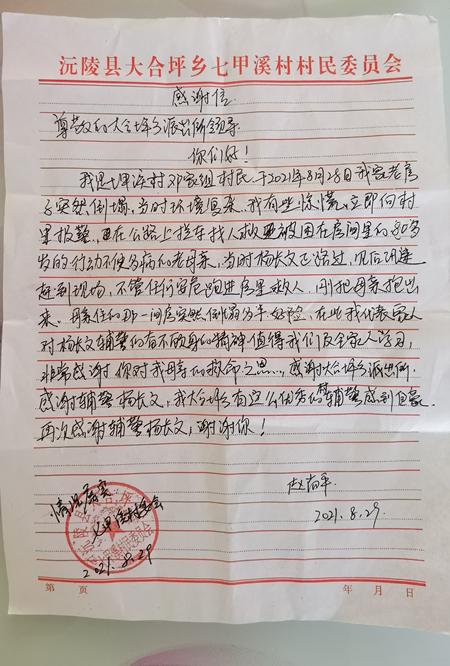 沅陵县大合坪乡七甲溪村村民委员会
感谢信
尊敬的大合坪乡派出所领导
你们好！
我是七甲溪村邓家组村民、于2021年8月28日我家老房
子突然倒塌，当时环境复杂、我有些惊慌，立即向村
里报警、在公路上拦车找人救被困在房间里的80多
岁的行动不便多病的老母亲，当时杨长文正路过，见后迅速
赶到现场，不管任何安危跑进房里救人，刚把母亲抱出
来，母亲住的那一间房突然倒塌万分危险，在此我代表家人
对杨长文辅警的奋不顾身的精神值得我们及全家人学习，
非常感谢你对我母亲的救命之恩、感谢大合坪乡派出所、
感谢辅警杨长文，我大合坪乡有这么优秀的辅警感到自豪
再次感谢辅警杨长文，谢谢你！
情况属实
七甲溪村委会
2021.8.29
2021.8.29
第 页
年 月 日